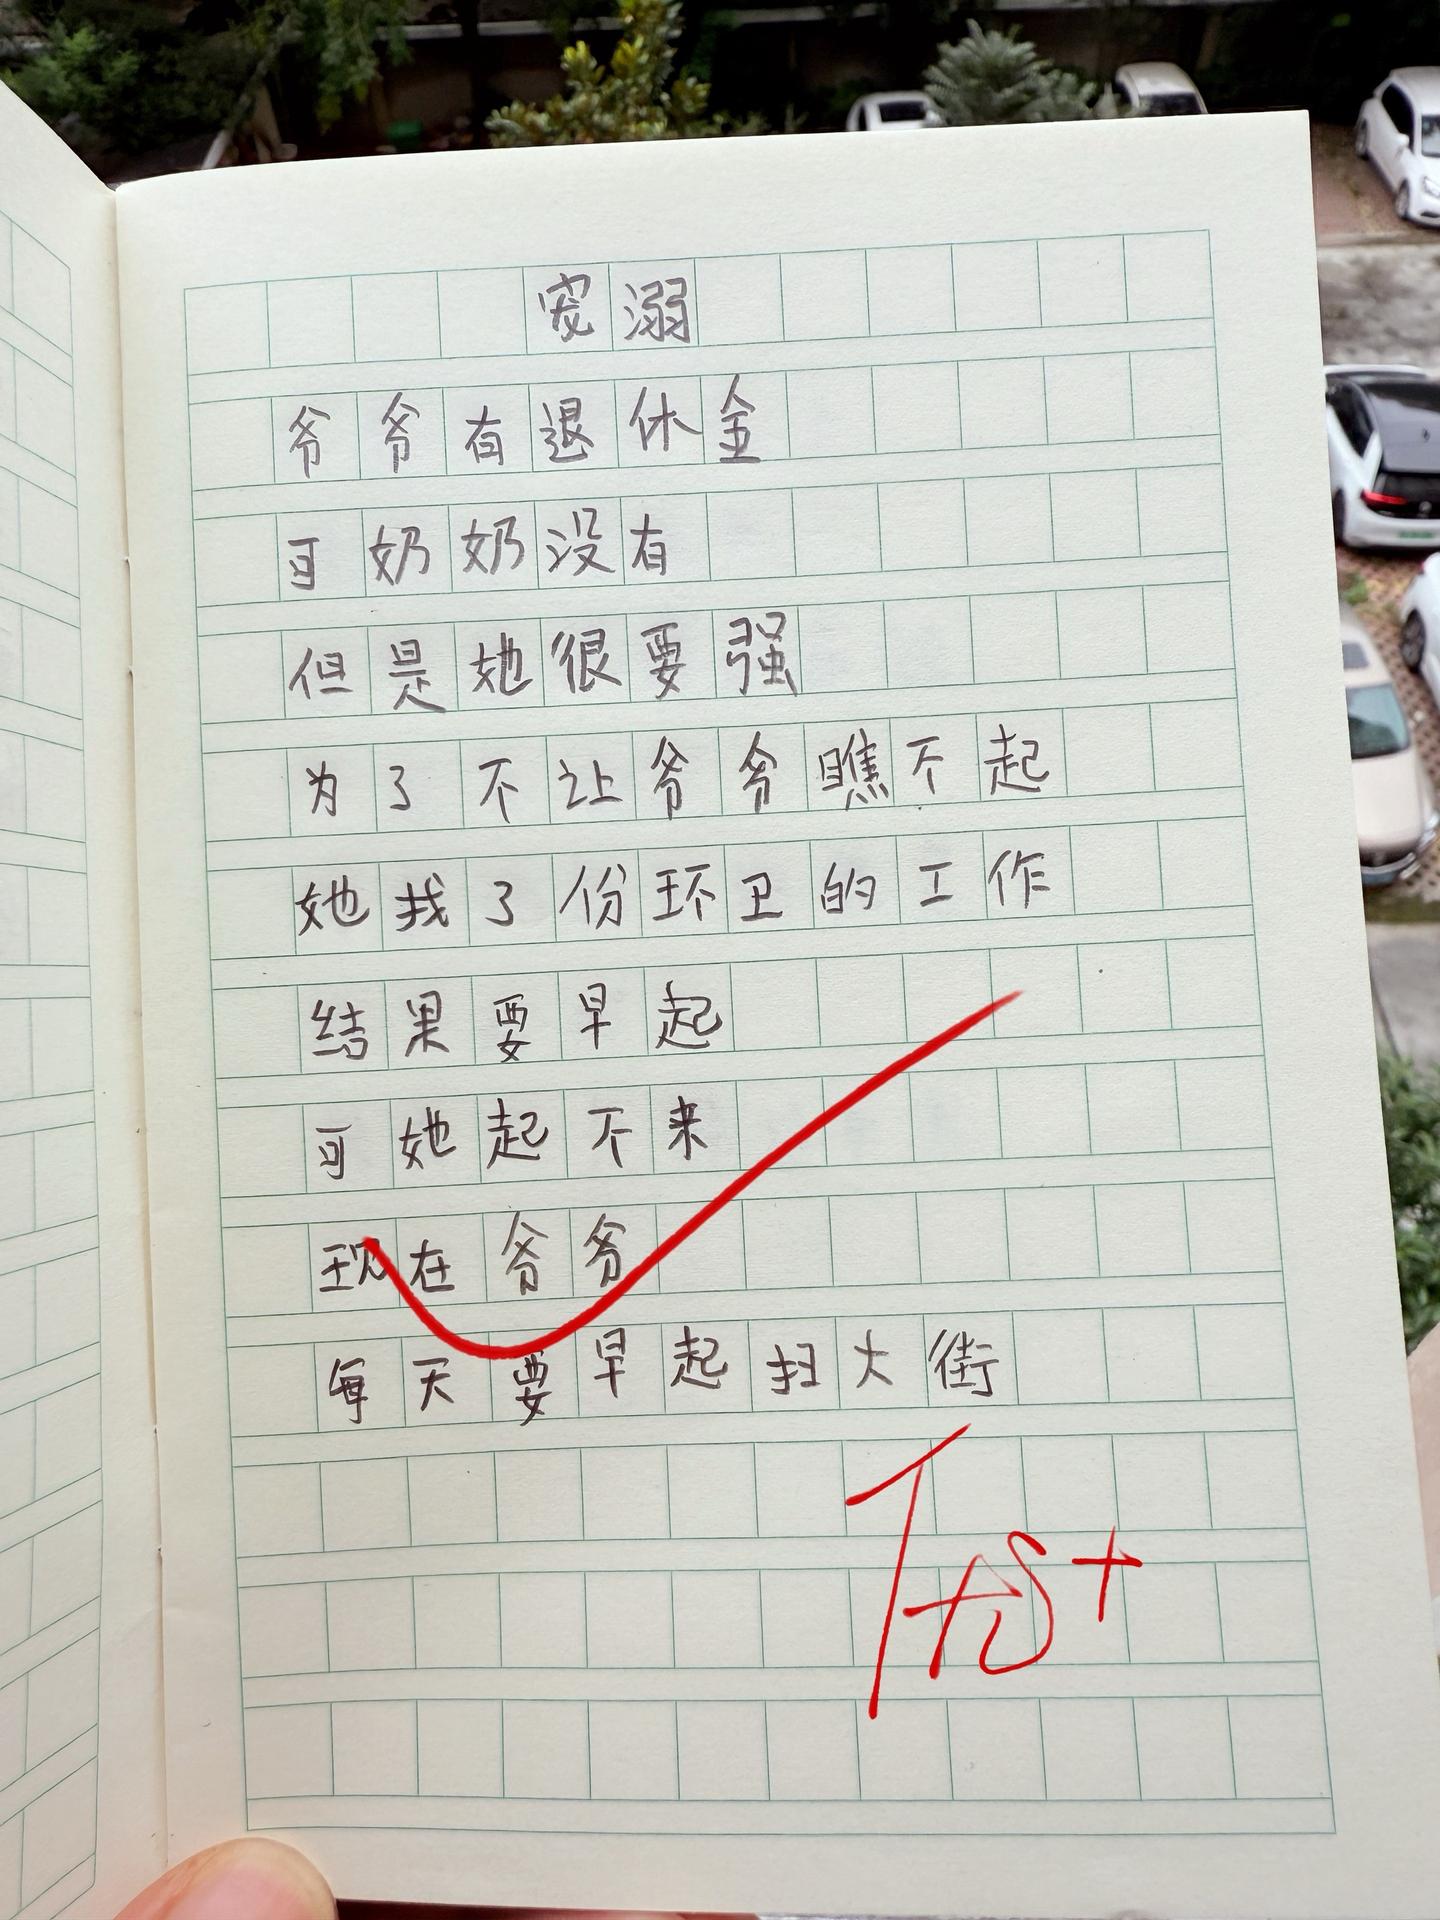 宠溺
爷爷有退休金
可奶奶没有
但是她很要强
为了不让爷爷瞧不起
她找了份环卫的工作
结果要早起
可她起不来
现在爷爷
每天要早起扫大街